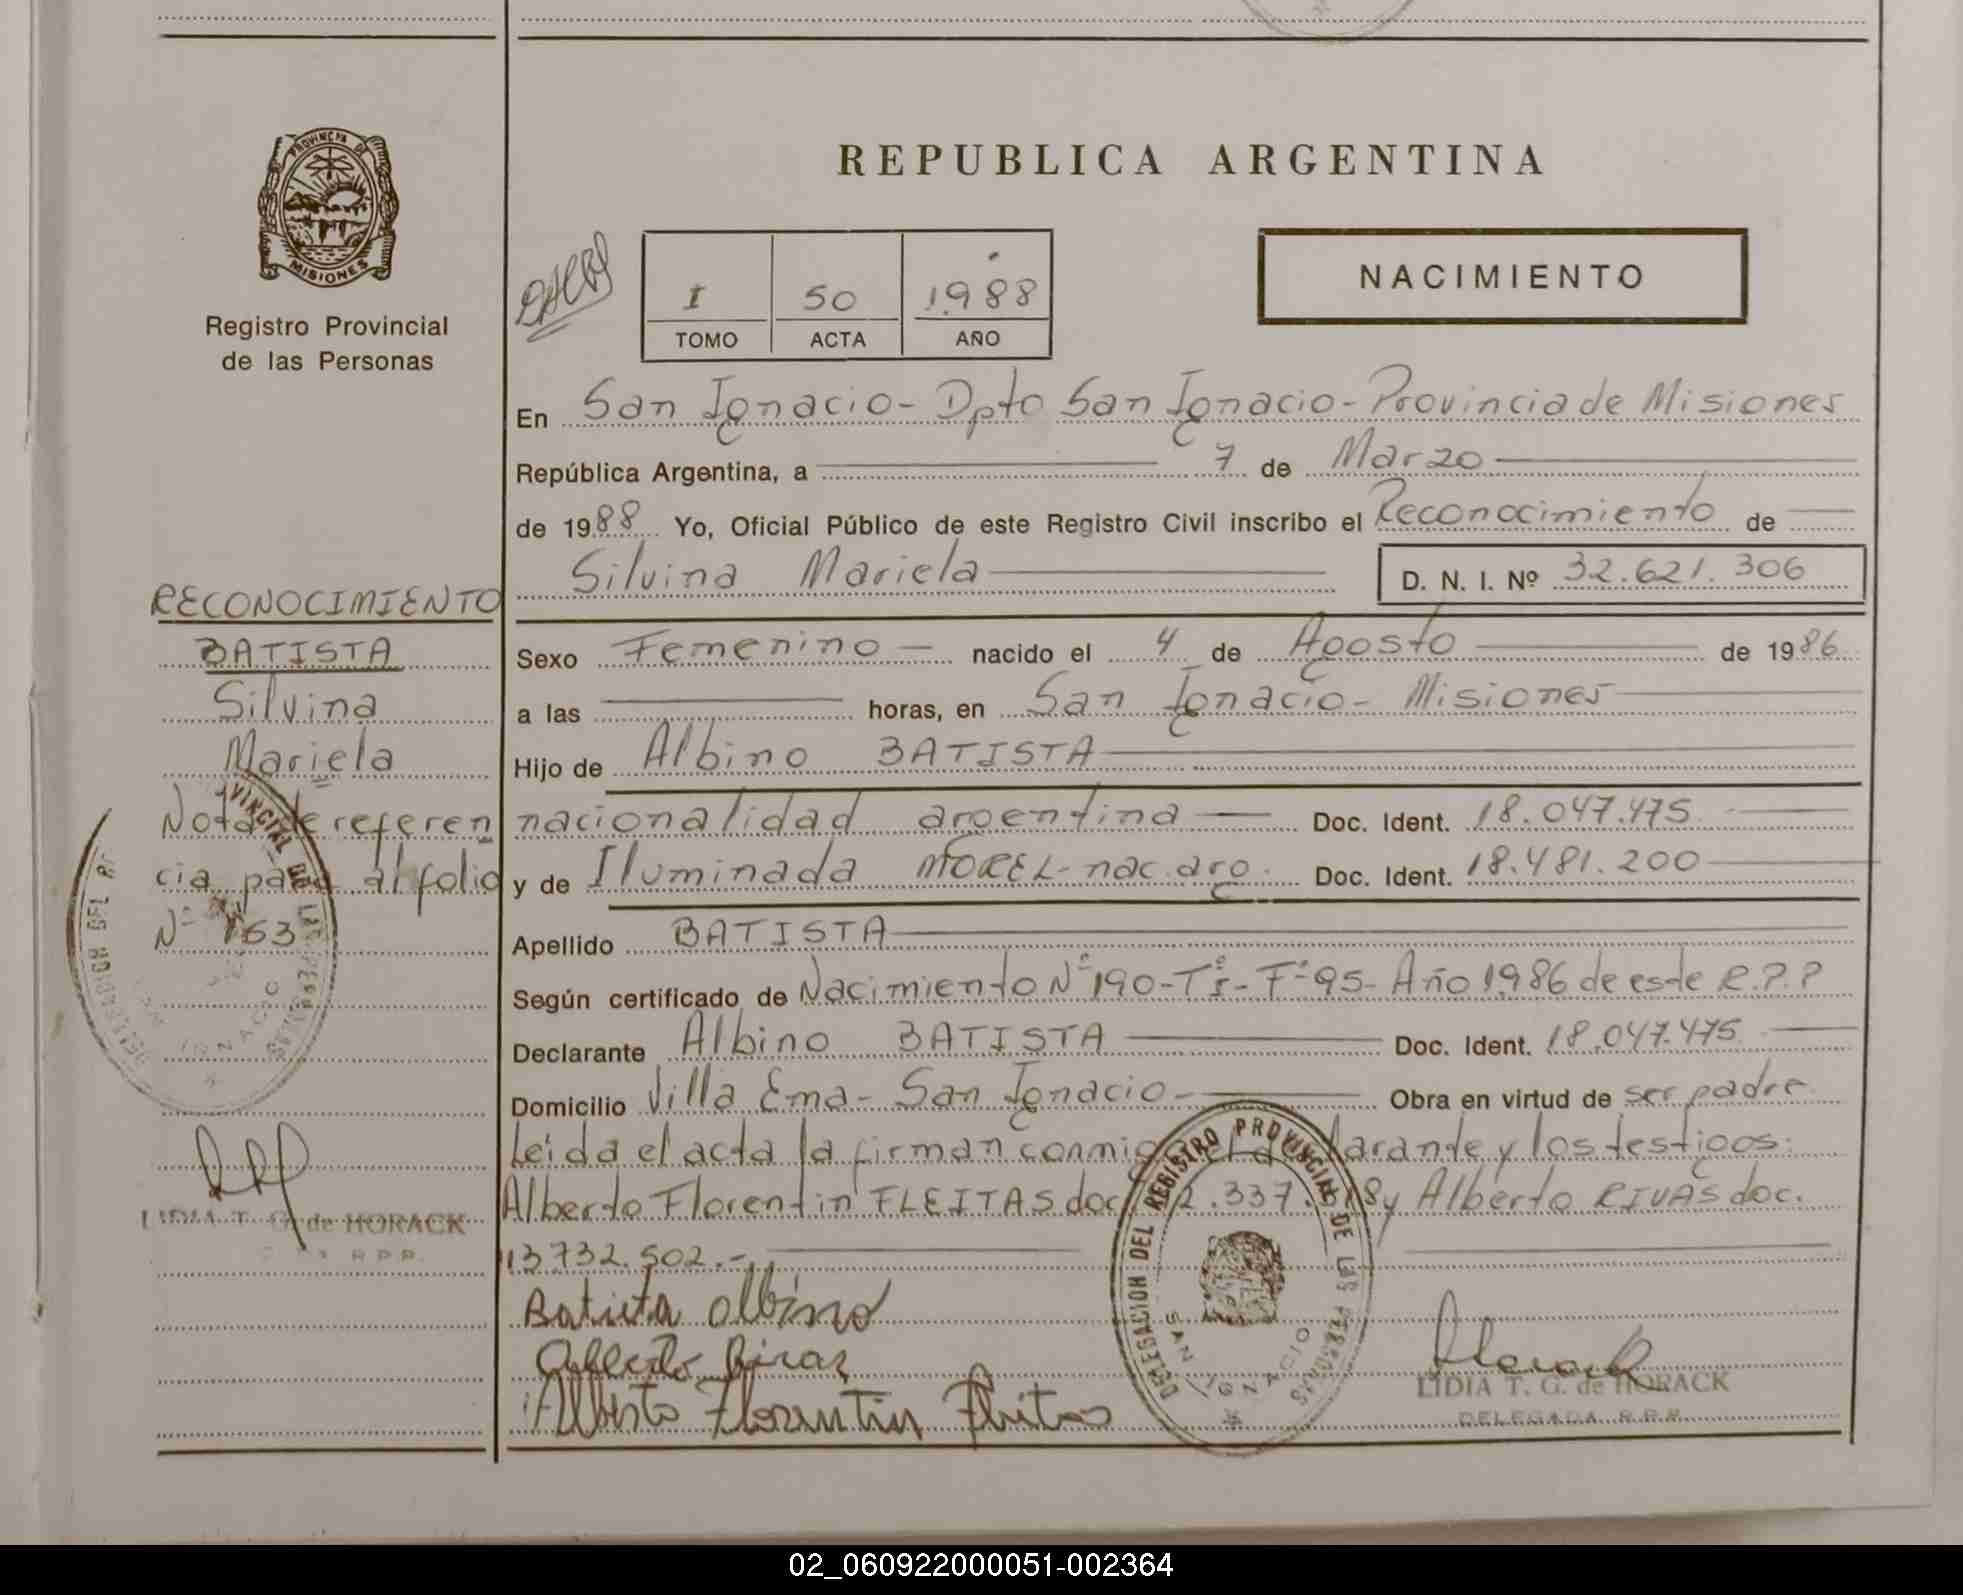 PROVINCIA DE
MISIONES
Registro Provincial
de las Personas
RECONOCIMIENTO
BATISTA
Silvina
Mariela
Nota de referen
cia para al folio
Nº 153
LIDIA T. G. de HORACK
R.P.P.
REPUBLICA ARGENTINA
I 50 1.988
TOMO ACTA AÑO
NACIMIENTO
En San Ignacio - Dpto San Ignacio - Provincia de Misiones
República Argentina, a 7 de Marzo
de 1988 Yo, Oficial Público de este Registro Civil inscribo el Reconocimiento de
Silvina Mariela D. N. I. Nº 32.621.306
Sexo Femenino nacido el 4 de Agosto de 1986
a las horas, en San Ignacio - Misiones
Hijo de Albino BATISTA
nacionalidad argentina Doc. Ident. 18.047.475
y de Iluminada MOREL - nac. arg. Doc. Ident. 18.481.200
Apellido BATISTA
Según certificado de Nacimiento Nº 190 - Tº I - Fº 95 - Año 1.986 de este R.P.P
Declarante Albino BATISTA Doc. Ident. 18.047.475
Domicilio Villa Ema - San Ignacio - Obra en virtud de ser padre
Leída el acta la firman conmigo el declarante y los testigos:
Alberto Florentin FLEITAS doc. .337. y Alberto RIVAS doc.
13732.502.-
Batista Albino
Rivas
Alberto Florentin Fleitas
DELEGACION DEL REGISTRO PROVINCIAL DE LAS PERSONAS
SAN IGNACIO
LIDIA T. G. de HORACK
DELEGADA R.P.P.
02_060922000051-002364